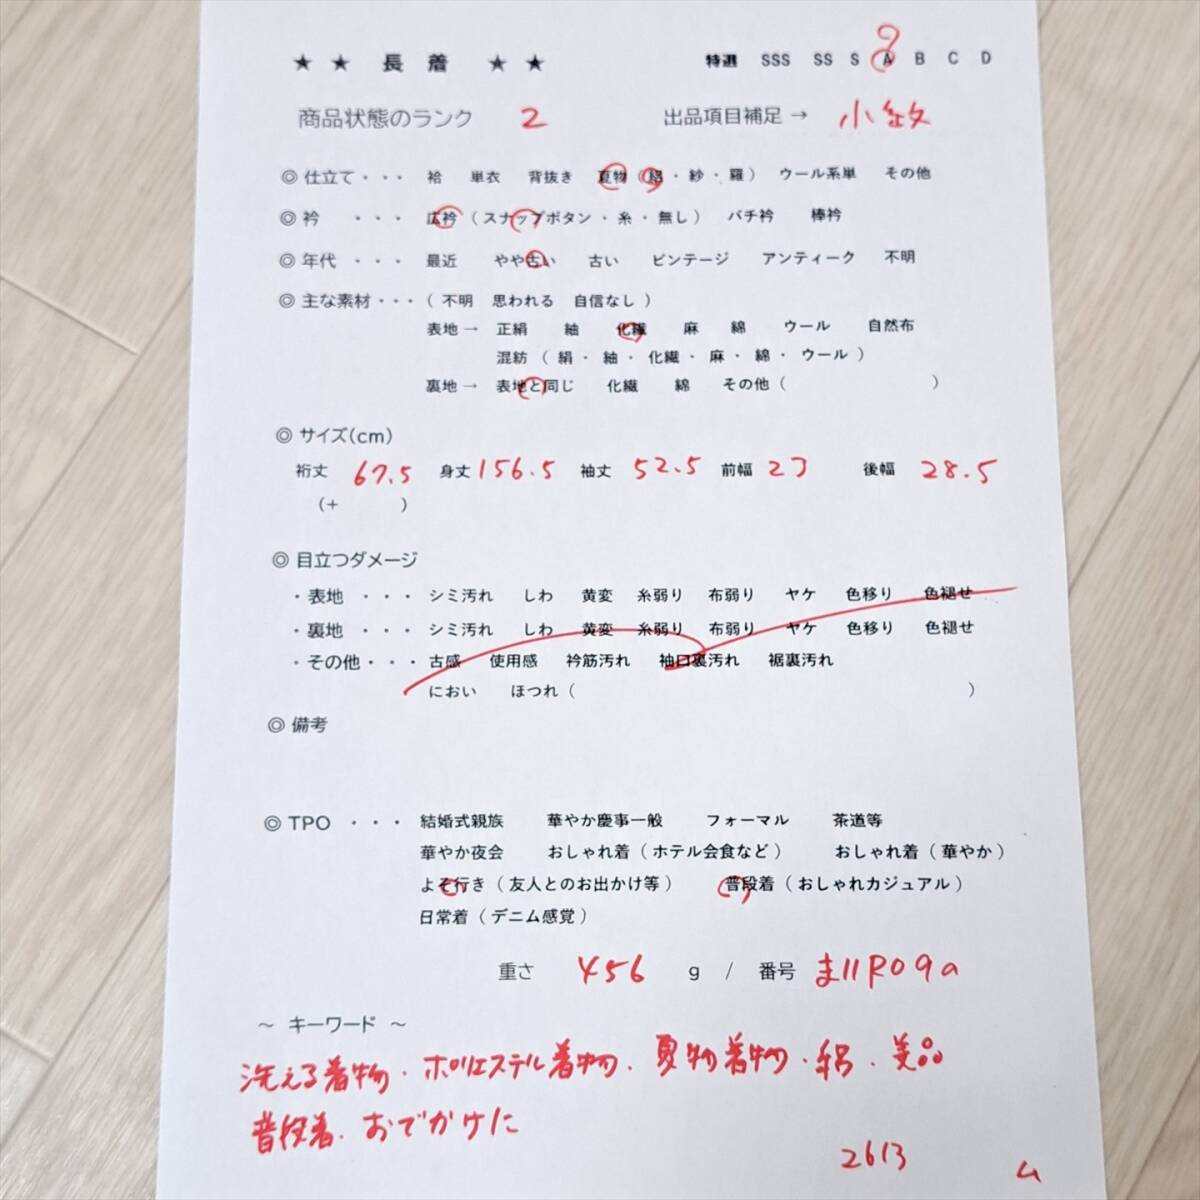 ★ ★ 長 着 ★ ★ 特選 SSS SS S A B C D
商品状態のランク 2 出品項目補足 → 小紋
◎ 仕立て・・・ 袷 単衣 背抜き 夏物 ( 絽 ・ 紗 ・ 羅 ) ウール系単 その他
◎ 衿 ・・・ 広衿 ( スナップボタン ・ 糸 ・ 無し ) バチ衿 棒衿
◎ 年代 ・・・ 最近 やや古い 古い ビンテージ アンティーク 不明
◎ 主な素材・・・ ( 不明 思われる 自信なし )
表地 → 正絹 紬 化繊 麻 綿 ウール 自然布
混紡 ( 絹 ・ 紬 ・ 化繊 ・ 麻 ・ 綿 ・ ウール )
裏地 → 表地と同じ 化繊 綿 その他 ( )
◎ サイズ(cm)
裄丈 67.5 身丈 156.5 袖丈 52.5 前幅 23 後幅 28.5
(+ )
◎ 目立つダメージ
・表地 ・・・ シミ汚れ しわ 黄変 糸弱り 布弱り ヤケ 色移り 色褪せ
・裏地 ・・・ シミ汚れ しわ 黄変 糸弱り 布弱り ヤケ 色移り 色褪せ
・その他・・・ 古感 使用感 衿筋汚れ 袖口裏汚れ 裾裏汚れ
におい ほつれ ( )
◎ 備考
◎ TPO ・・・ 結婚式親族 華やか慶事一般 フォーマル 茶道等
華やか夜会 おしゃれ着 ( ホテル会食など ) おしゃれ着 ( 華やか )
よそ行き ( 友人とのお出かけ等 ) 普段着 ( おしゃれカジュアル )
日常着 ( デニム感覚 )
重さ 456 g / 番号 ま11R09a
～ キーワード ～
洗える着物・ポリエステル着物・夏物着物・絽・美品
普段着・おでかけに
2613 ム